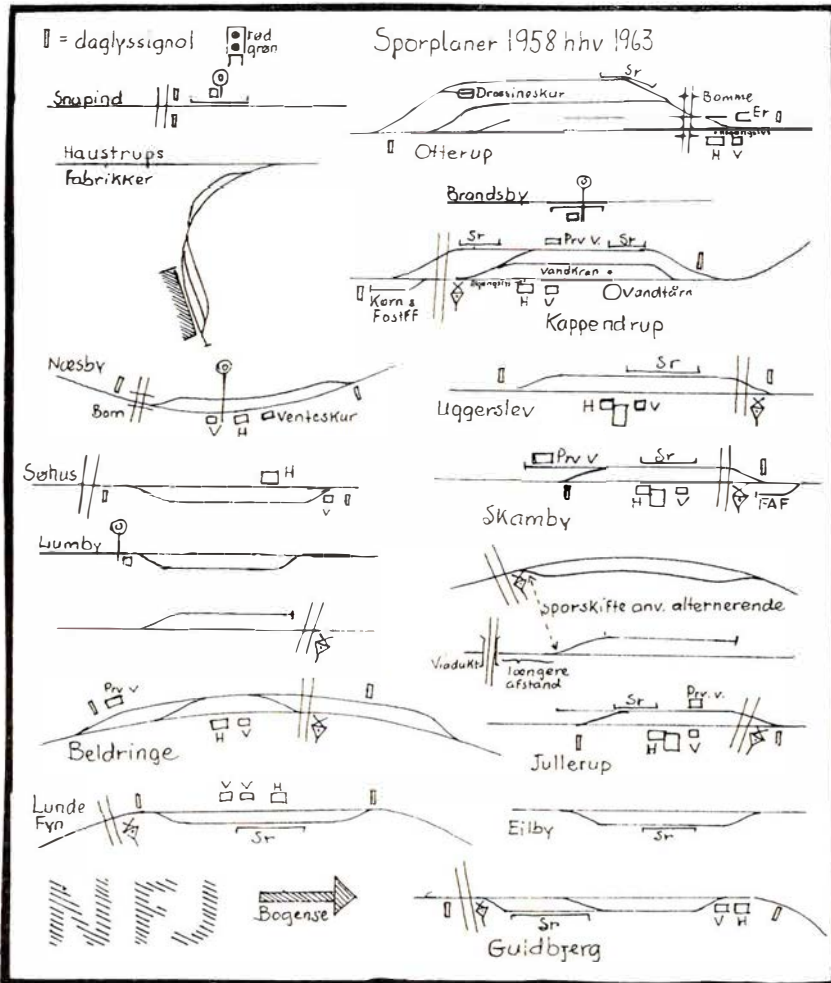 ▯ = daglyssignal
rød
grøn
Sporplaner 1958 hhv 1963
Snapind
Haustrups
Fabrikker
Næsby
Bom
V H Venteskur
Søhus
H
V
Lumby
Prv V
H V
Beldringe
V V H
Lunde
Fyn
Sr
NFJ
Bogense
Sr
Drossineskur
Bomme
Er
H V
Otterup
Brandsby
Sr
Prv V.
Sr
Vandkran
Korn &
H V
Vandtårn
Kappendrup
Sr
H V
Uggerslev
Prv V
Sr
H V
FAF
Skamby
Sporskifte anv. alternerende
Viadukt
længere
afstand
Sr
Prv. v.
H V
Jullerup
Eilby
Sr
Sr
V H
Guldbjerg